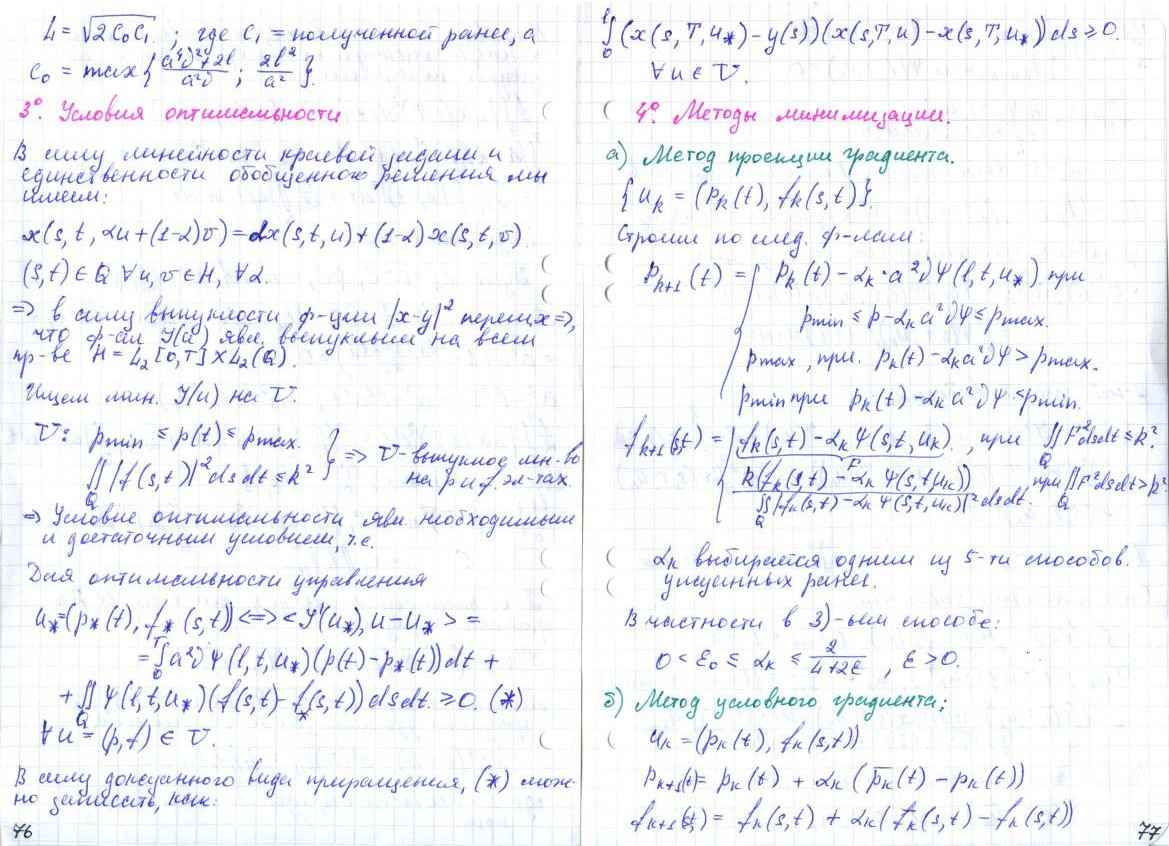 L = √(2C₀C₁) ; где C₁ = полученной ранее, а
C₀ = max{ (a⁴ν²+2l)/(a²ν) ; 2l²/a² }.
3°. Условия оптимальности
В силу линейности краевой задачи и
единственности обобщенного решения мы
имеем:
x(s,t,αu+(1-α)v) = αx(s,t,u)+(1-α)x(s,t,v)
(s,t)∈Q ∀u,v∈H, ∀α.
=> в силу выпуклости ф-ции |x-y|² перем. x =>,
что ф-ал J(u) явл. выпуклым на всем
пр-ве H = L₂[0,T]×L₂(Q).
Ищем мин. J(u) на U.
U: pmin ≤ p(t) ≤ pmax.
∬_Q |f(s,t)|² dsdt ≤ k² } => U - выпуклое мн-во
на p и f. эл-тах
=> Условие оптимальности явл. необходимым
и достаточным условием, т.е.
Для оптимальности управления
u* = (p*(t), f*(s,t)) <=> <J'(u*), u-u*> =
= ∫₀ᵀ a²νψ(l,t,u*)(p(t)-p*(t))dt +
+ ∬_Q ψ(l,t,u*)(f(s,t)-f*(s,t))dsdt ≥ 0. (*)
∀u = (p,f) ∈ U.
В силу доказанного вида приращения, (*) мож-
но записать, как:
76
∫₀ˡ (x(s,T,u*)-y(s))(x(s,T,u)-x(s,T,u*))ds ≥ 0.
∀u∈U.
4°. Методы минимизации.
а) Метод проекции градиента.
{u_k = (p_k(t), f_k(s,t)}.
Строим по след. ф-лам:
p_{k+1}(t) = { p_k(t) - α_k·a²νψ(l,t,u*) при
pmin ≤ p-α_k a²νψ ≤ pmax.
pmax, при. p_k(t)-α_k a²νψ > pmax.
pmin при p_k(t)-α_k a²νψ ≤ pmin.
f_{k+1}(s,t) = { f_k(s,t)-α_kψ(s,t,u_k)., при ∬_Q F²dsdt ≤ k².
F
k(f_k(s,t)-α_kψ(s,t,u_k)) / ∬_Q |f_k(s,t)-α_kψ(s,t,u_k)|² dsdt. при ∬_Q F²dsdt > k²
α_k выбирается одним из 5-ти способов.
указанных ранее.
В частности в 3)-ем способе:
0 < ε₀ ≤ α_k ≤ 2/(L+2ε), ε > 0.
б) Метод условного градиента:
u_k = (p_k(t), f_k(s,t))
p_{k+1}(t) = p_k(t) + α_k(p̄_k(t) - p_k(t))
f_{k+1}(s,t) = f_k(s,t) + α_k(f̄_k(s,t) - f_k(s,t))
77